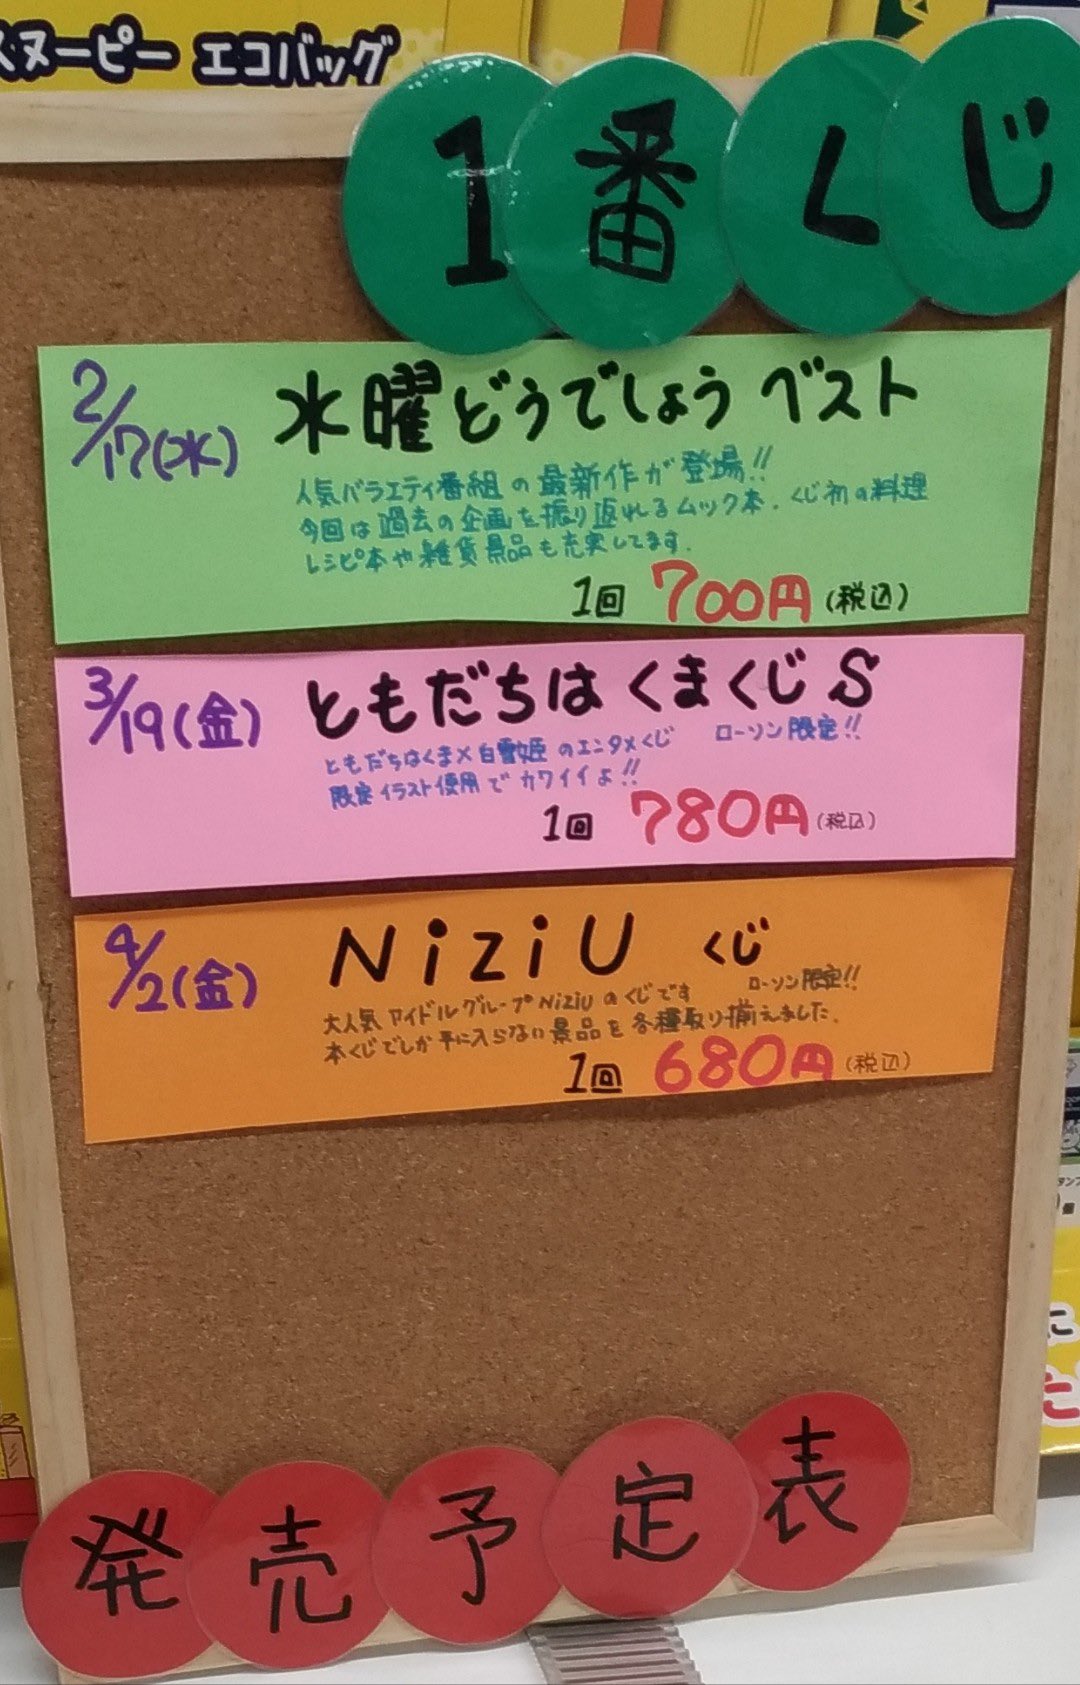 スヌーピー エコバッグ
1番くじ
2/17(水) 水曜どうでしょう ベスト
人気バラエティ番組の最新作が登場!!
今回は過去の企画を振り返れるムック本、くじ初の料理
レシピ本や雑貨景品も充実してます。
1回 700円(税込)
3/19(金) ともだちはくまくじ S
ともだちはくま×白雪姫のエンタメくじ ローソン限定!!
限定イラスト使用でカワイイよ!!
1回 780円(税込)
4/2(金) NiziU くじ
大人気アイドルグループNiziUのくじです ローソン限定!!
本くじでしか手に入らない景品を各種取り揃えました。
1回 680円(税込)
発売予定表